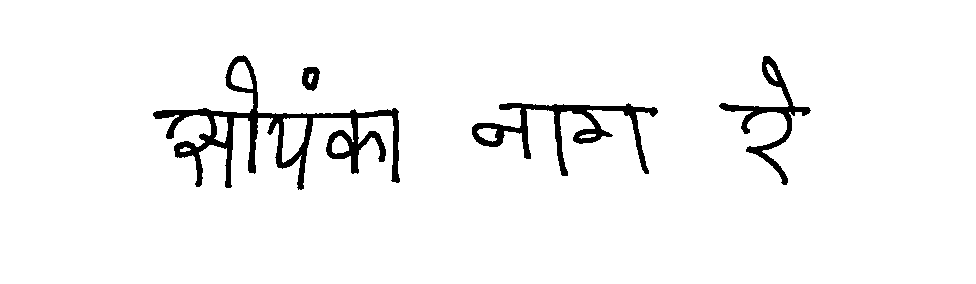 सीपंका नाग रे